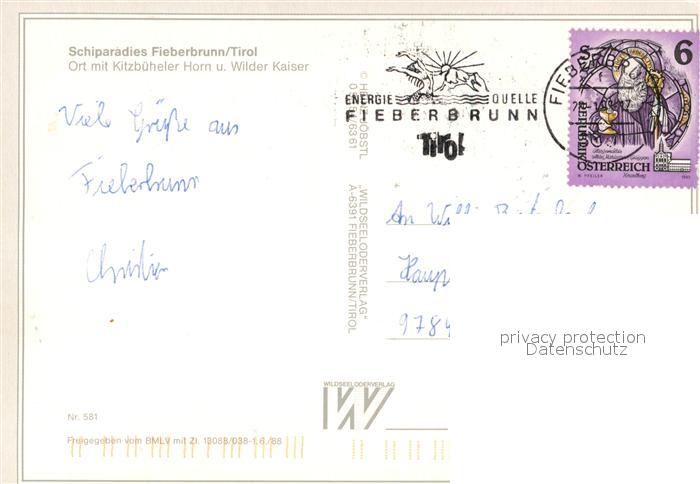 Schiparadies Fieberbrunn/Tirol
Ort mit Kitzbüheler Horn u. Wilder Kaiser
Viele Grüße aus
Fieberbrunn
Christian
Nr. 581
Freigegeben vom BMLV mit Zl. 13088/038-1.6/88
"WILDSEELODERVERLAG"
A-6391 FIEBERBRUNN/TIROL
WILDSEELODERVERLAG
W
ENERGIE QUELLE
FIEBERBRUNN
Tirol
FIEBERBRUNN
6
REPUBLIK
ÖSTERREICH
An
Haup
9784
privacy protection
Datenschutz